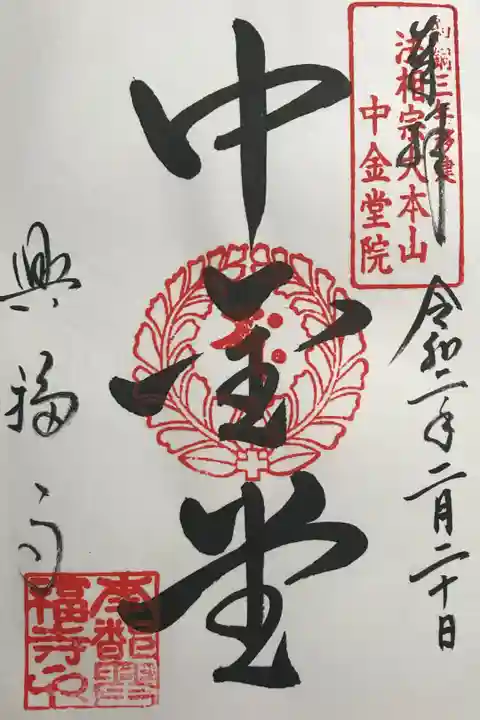 奉拝
和銅三年移建
法相宗大本山
中金堂院
令和二年二月二十日
中金堂
興福寺
南都興福寺之印